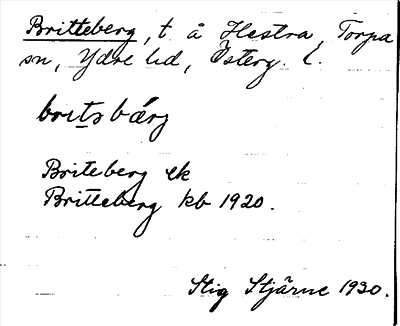 Britteberg, t. å Hestra, Torpa
sn, Ydre hd, Österg. l.
britsbärj
Briteberg ek
Britteberg kb 1920.
Stig Stjärne 1930.